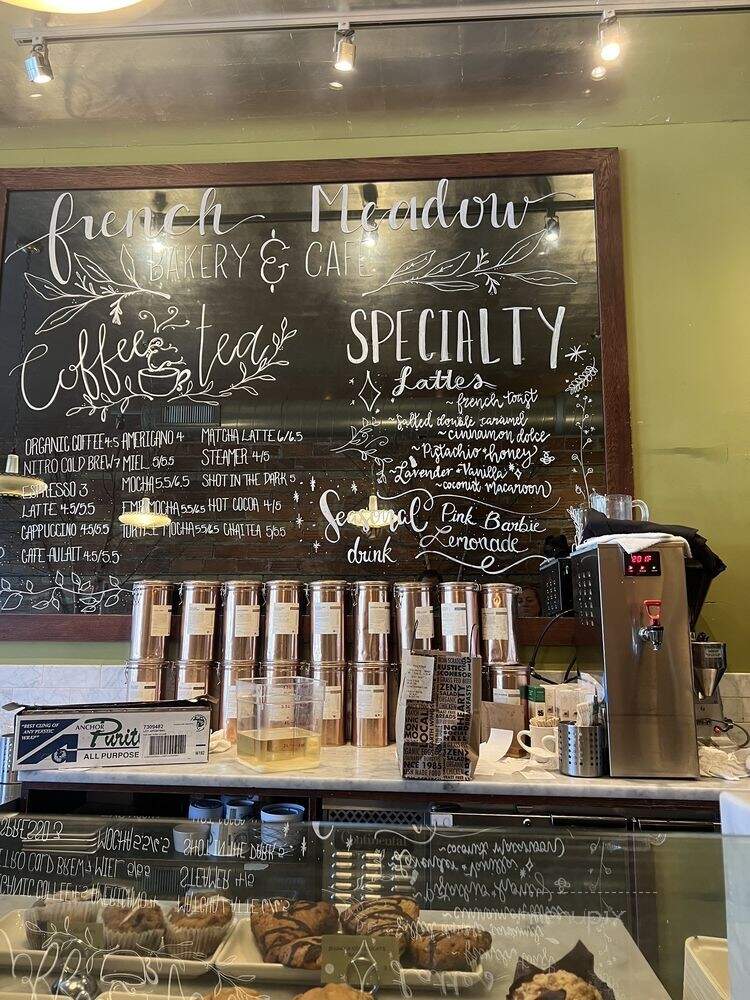 french Meadow
BAKERY & CAFE
Coffee tea
ORGANIC COFFEE 4.5
NITRO COLD BREW 7
ESPRESSO 3
LATTE 4.5/5.5
CAPPUCCINO 4.5/5.5
CAFE AULAIT 4.5/5.5
AMERICANO 4
MIEL 5/5.5
MOCHA 5.5/6.5
MOCHA 5.5/6.5
TURTLE MOCHA 5.5/6.5
MATCHA LATTE 6/6.5
STEAMER 4/5
SHOT IN THE DARK 5
HOT COCOA 4/5
CHAI TEA 5/5.5
SPECIALTY
Lattes
~ french toast
~ Salted double caramel
~ cinnamon dolce
~ Pistachio + honey
~ Lavender + Vanilla
~ coconut macaroon
Seasonal drink
Pink Barbie
Lemonade
"BEST CLING OF
ANY PLASTIC
WRAP"
ANCHOR
Purit
ALL PURPOSE
7309482
RUSTIC
ZEN
SALAD
LOCAL
NCE 1985
201F
Continental